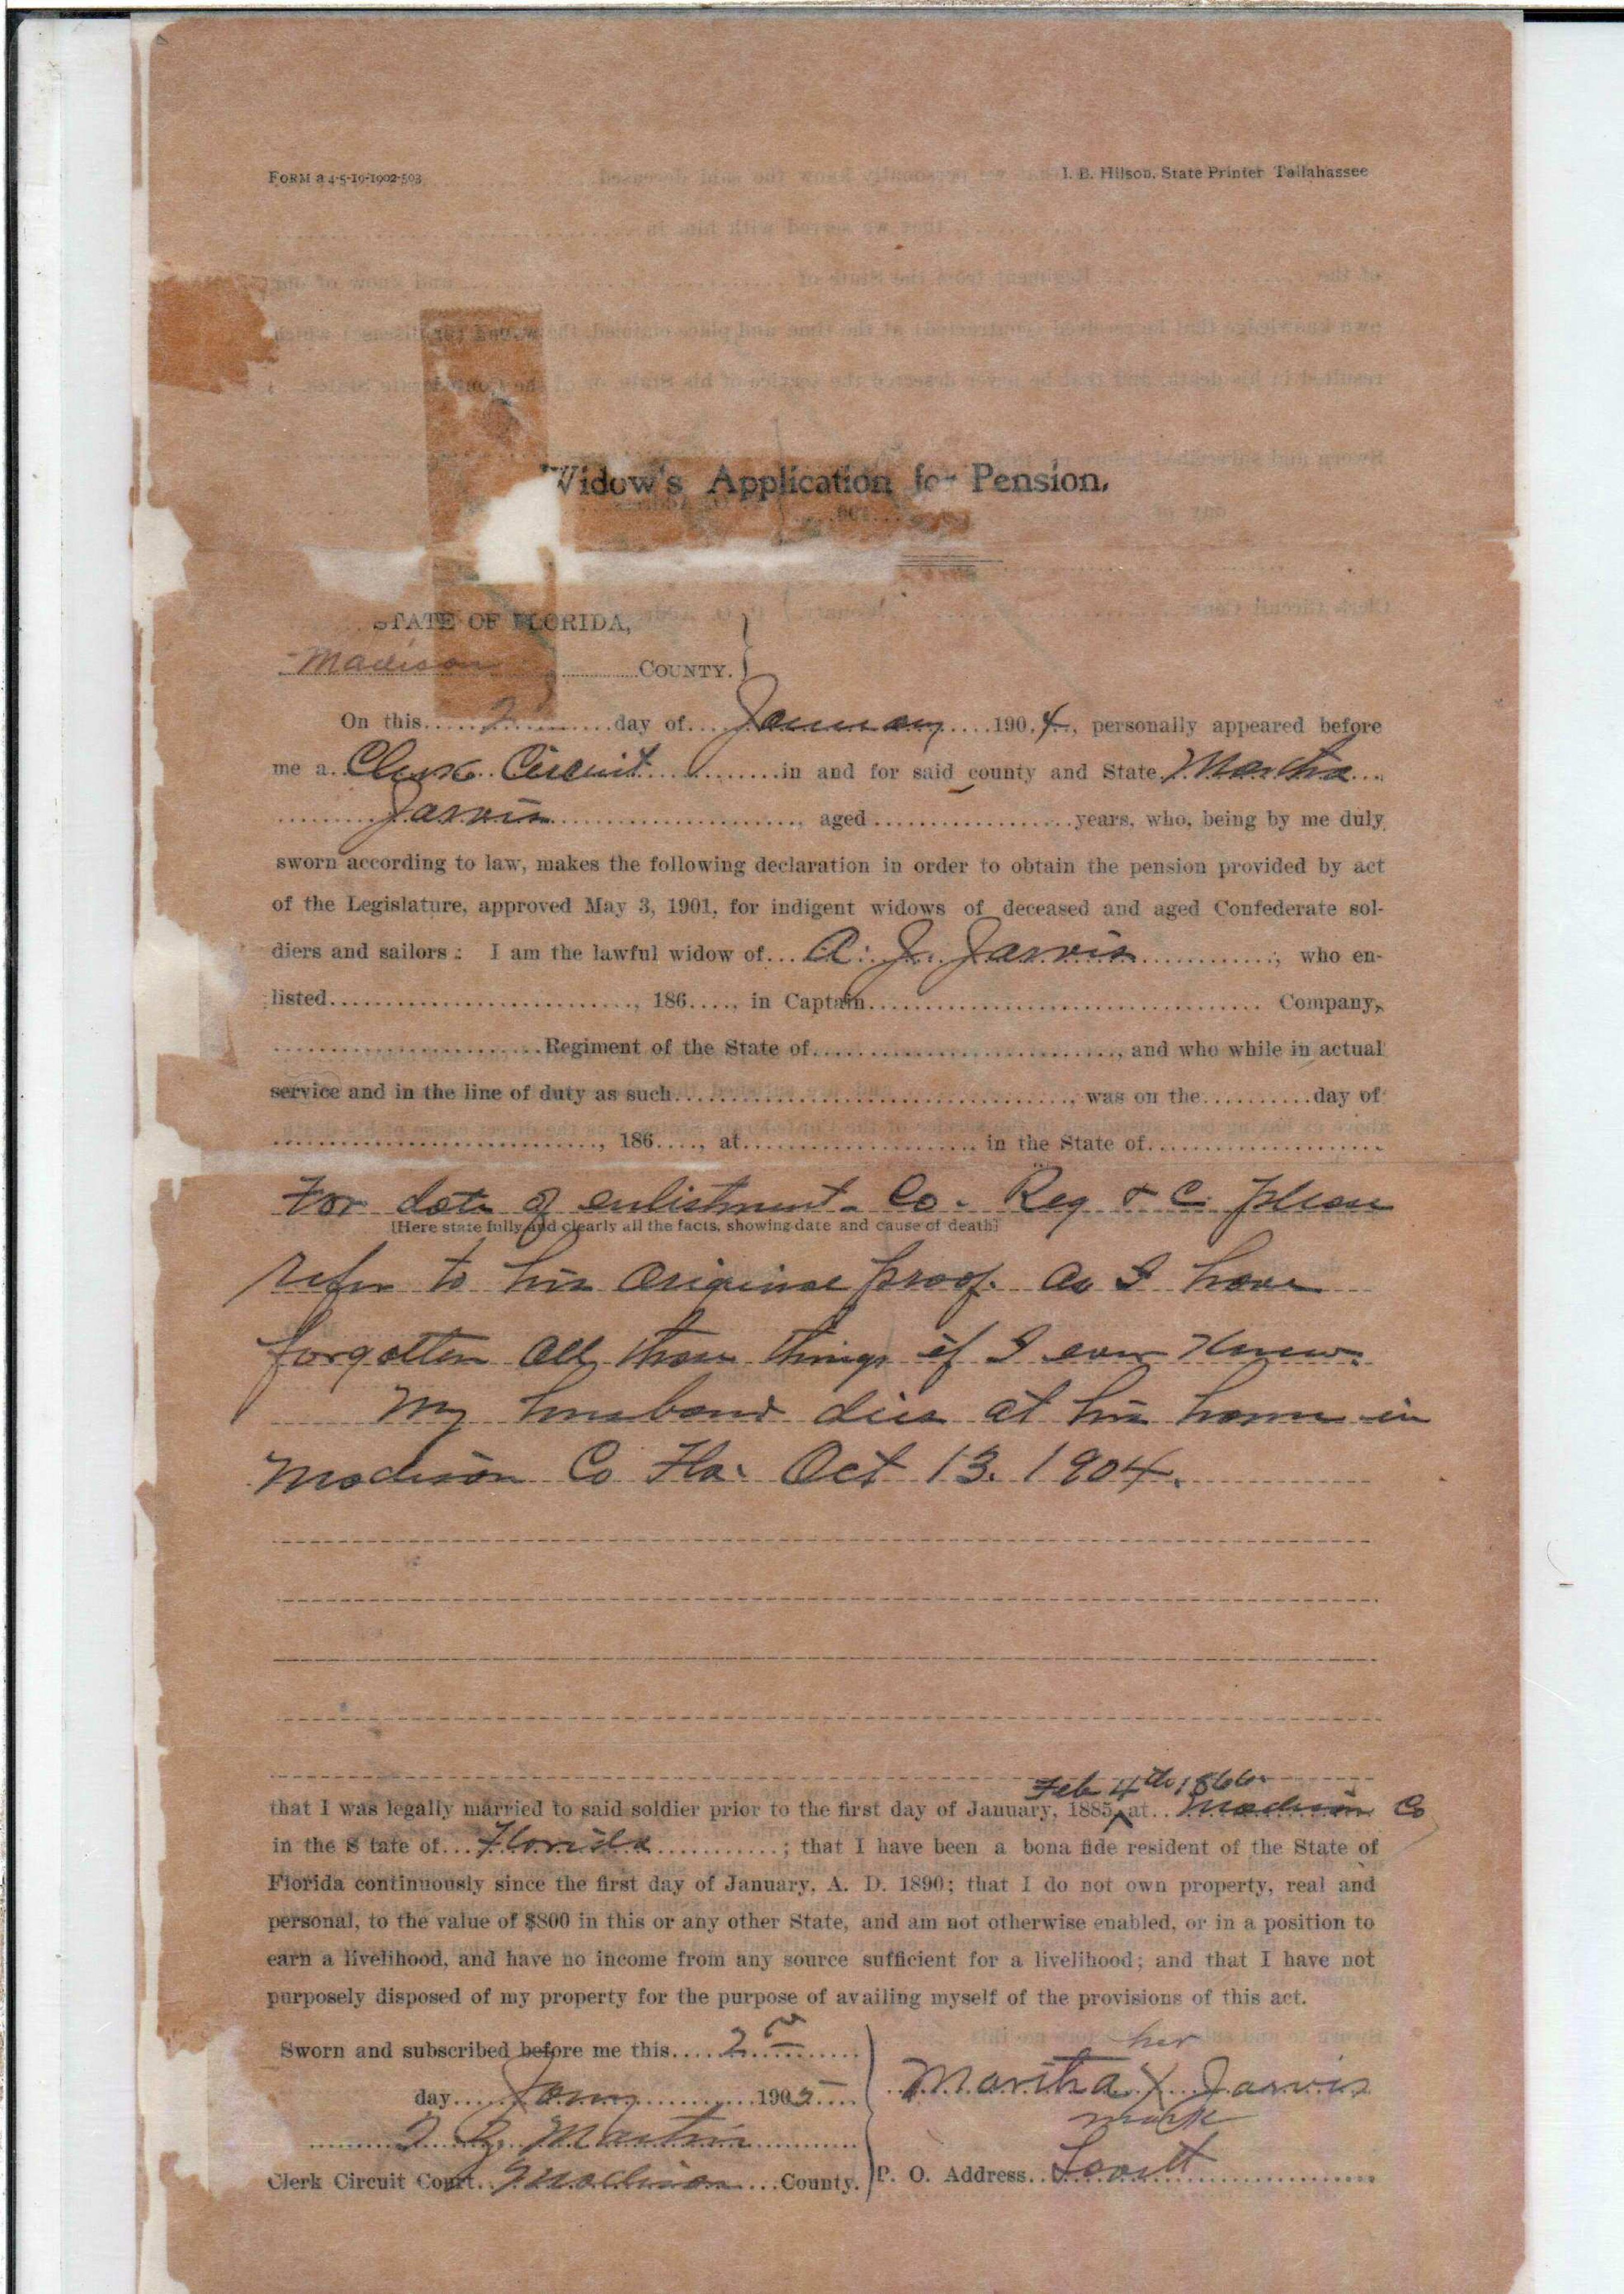 FORM a 4-5-19-1902-503
I. B. Hilson, State Printer Tallahassee
Widow's Application for Pension.
STATE OF FLORIDA,
Madison COUNTY.
On this 2 day of January 1904, personally appeared before
me a Clerk Circuit in and for said county and State Martha
Jarvis, aged years, who, being by me duly
sworn according to law, makes the following declaration in order to obtain the pension provided by act
of the Legislature, approved May 3, 1901, for indigent widows of deceased and aged Confederate sol-
diers and sailors: I am the lawful widow of A. J. Jarvis, who en-
listed, 186, in Captain Company,
Regiment of the State of, and who while in actual
service and in the line of duty as such, was on the day of
, 186, at, in the State of
For date of enlistment - Co - Reg & C please
[Here state fully and clearly all the facts, showing date and cause of death]
refer to his original proof. As I have
forgotten all those things if I ever knew.
My husband died at his home in
Madison Co Fla. Oct 13. 1904.
Feb 4th 1866
that I was legally married to said soldier prior to the first day of January, 1885, at Madison Co
in the State of Florida; that I have been a bona fide resident of the State of
Florida continuously since the first day of January, A. D. 1890; that I do not own property, real and
personal, to the value of $800 in this or any other State, and am not otherwise enabled, or in a position to
earn a livelihood, and have no income from any source sufficient for a livelihood; and that I have not
purposely disposed of my property for the purpose of availing myself of the provisions of this act.
Sworn and subscribed before me this 2
day Jany 1905
Martin
Clerk Circuit Court Madison County.
her
Martha X Jarvis
mark
P. O. Address Lovett